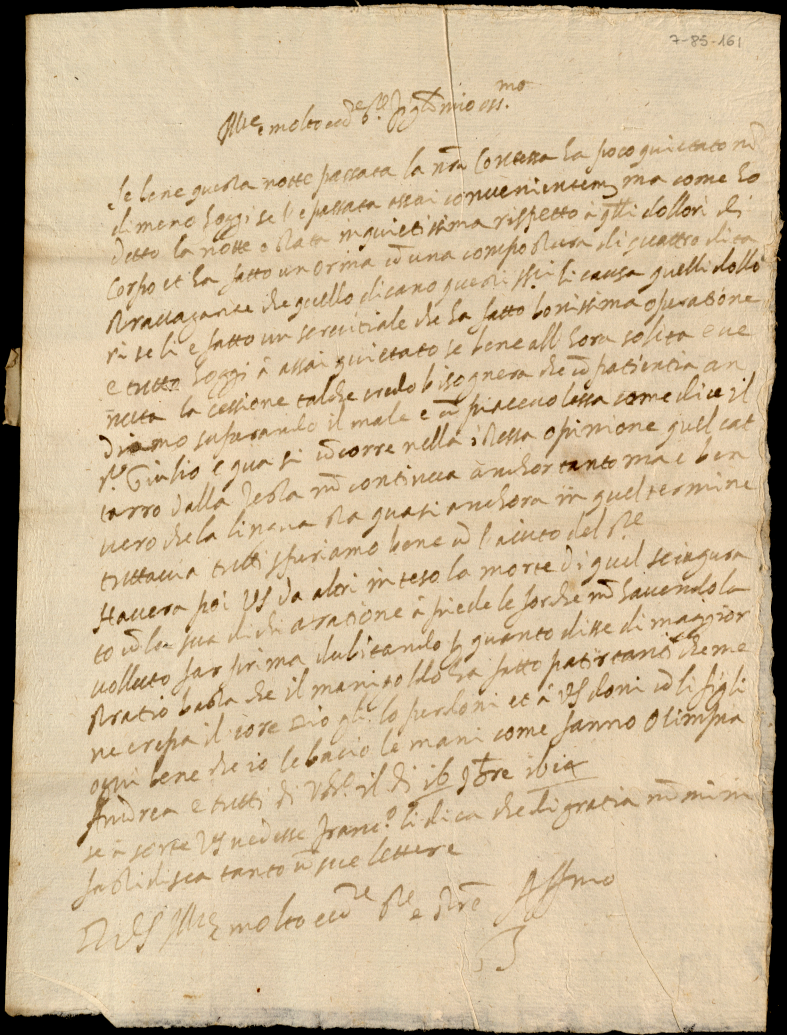 7-85-161
Ill.re e molto ecc.te s.r mio oss.mo
se bene questa notte passata la n.ra Contessa ha poco quietato nō
di meno hoggi se l'e passata assai convenientem.te ma come ho
detto la notte e stata inquietissima rispetto à q.lli dollori di
corpo et ha fatto un orina cō una compostura di quattro dita
stravagante che quello dicano questi ss.ri li causa quelli dollo
ri se li e fatto un servitiale che ha fatto bonissima operatione
e tutto hoggi à assai quietato se bene all hora solita e ve
nuta la cessione talche credo bisognera che cō patientia an
diamo superando il male e cō piacevolessa come dice il
s.r Giulio e qua si cōcorre nella istessa opinione quel cat
tarro dalla testa nō continua anchor tanto ma e ben
vero che la lingua sta quasi anchora in quel termine
tuttavia tutti speriamo bene cō l'aiuto del s.re
Havera poi VS da altri inteso la morte di quel sciagura
to cō la sua dichiaratione à piede le forche nō havendola
volluto far prima dubitando p quanto disse di maggior
stratio basta che il manigoldo ha fatto patir tanti che me
ne crepa il core Dio gli lo perdoni et à VS doni cō li figli
ogni bene che io le bacio le mani come fanno Olimpia
Andrea e tutti di il di 16 9bre
se à sorte VS vedesse Franc.o li dica che di gratia nō mi in
fastidisca tanto cō sue lettere
Di VS Ill.re e molto ecc.te s.re Aff.mo